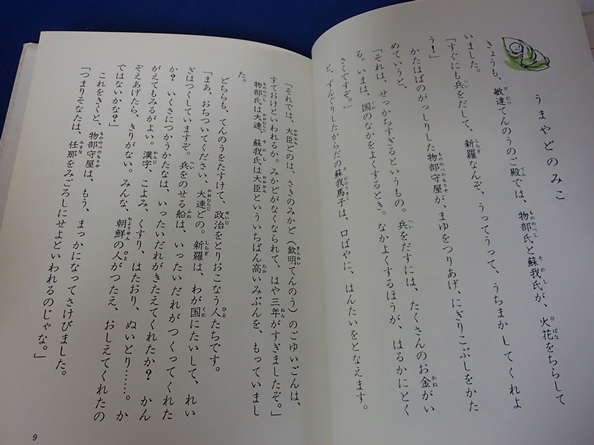 うまやどのみこ
きょうも、敏達てんのうのご殿では、物部氏と蘇我氏が、火花をちらして
いました。
「すぐにも兵をだして、新羅なんぞ、うってうって、うちまかしてくれよ
う！」
かたはばのがっしりした物部守屋が、まゆをつりあげ、にぎりこぶしをかた
めていうと、
「それは、せっかちすぎるというもの。兵をだすには、たくさんのお金がい
る。いまは、国のなかをよくするとき。なかよくするほうが、はるかにとく
さですぞ。」
と、ずんぐりしたからだの蘇我馬子は、口ばやに、はんたいをとなえます。
「それでは、大臣どのは、さきのみかど（欽明てんのう）のごゆいごんは、
すておけといわれるか。みかどがなくなられて、はや三年がすぎましたぞ。」
物部氏は大連、蘇我氏は大臣といういちばん高いみぶんを、もっていまし
た。
どちらも、てんのうをたすけて、政治をとりおこなう人たちです。
「まあ、おちついてください、大連どの。新羅は、わが国にたいして、れい
ぎはつくしていますぞ。兵をのせる船は、いったいだれがつくってくれた
か？いくさにつかうかたなは、いったいだれがきたえてくれたか？かん
がえてもみるがよい。漢字、こよみ、くすり、はたおり、ぬいとり……。か
ぞえあげたら、きりがない。みんな、朝鮮の人がつたえ、おしえてくれたの
ではないかな？」
これをきくと、物部守屋は、もう、まっかになってさけびました。
「つまりそなたは、任那をみごろしにせよといわれるのじゃな。」
9